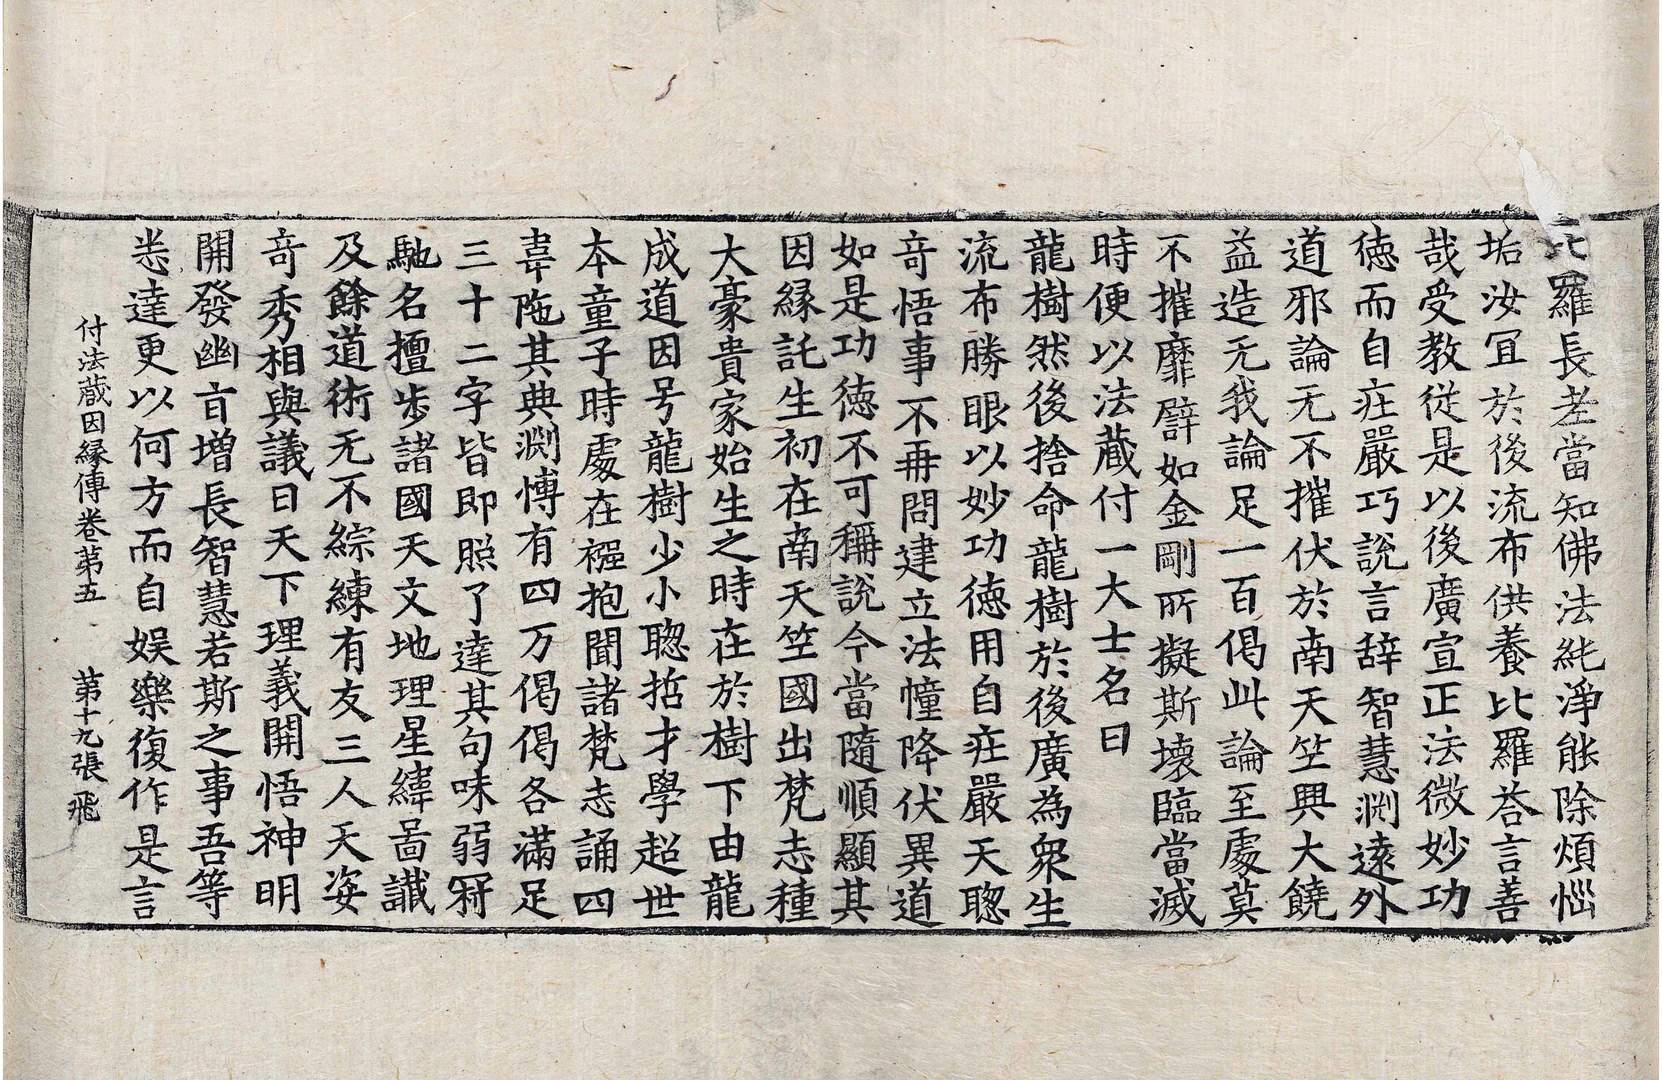 比羅長老當知佛法純淨能除煩惱
垢汝冝於後流布供養比羅荅言善
哉受教從是以後廣宣正法微妙功
徳而自庄嚴巧說言辞智慧渕遠外
道邪論无不摧伏於南天竺興大饒
益造无我論足一百偈此論至處莫
不摧靡譬如金剛所擬斯壞臨當滅
時便以法藏付一大士名曰
龍樹然後捨命龍樹於後廣為衆生
流布勝眼以妙功徳用自庄嚴天聦
竒悟事不再問建立法幢降伏異道
如是功徳不可稱說今當隨順顯其
因縁託生初在南天竺國出梵志種
大豪貴家始生之時在於樹下由龍
成道因号龍樹少小聦哲才學超世
本童子時處在襁抱聞諸梵志誦四
韋陁其典渕愽有四万偈偈各滿足
三十二字皆即照了達其句味弱冠
馳名擅步諸國天文地理星緯啚讖
及餘道術无不綜練有友三人天姿
竒秀相與議曰天下理義開悟神明
開發幽㫖增長智慧若斯之事吾等
悉達更以何方而自娱樂復作是言
付法藏因縁傳卷第五 第十九張 飛